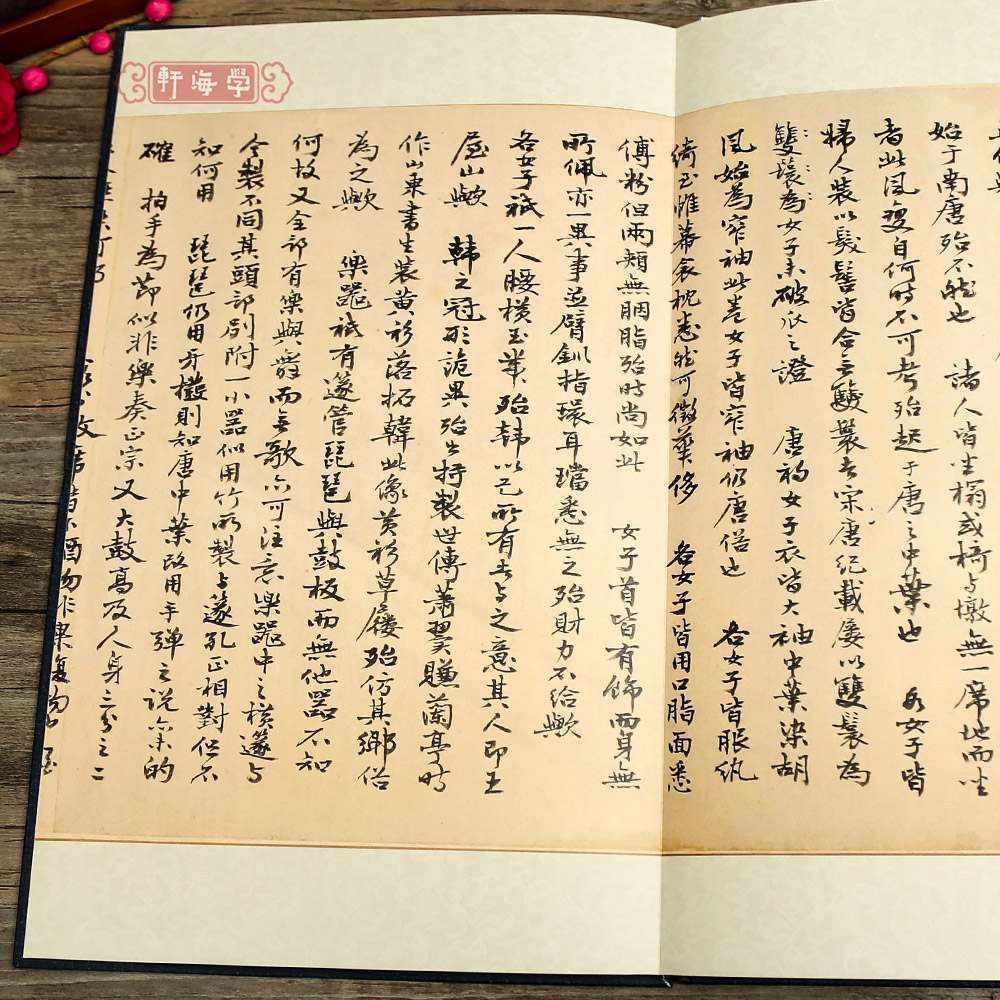 學海軒
始于南唐殆不然也 諸人皆坐榻或椅与墩無一席地而坐
者此風變自何時不可考殆起于唐之中葉也 各女子皆
婦人裝以髮髻皆合之雙鬟者宋唐紀載屢以雙鬟為
雙鬟為女子未破瓜之證 唐初女子衣皆大袖中葉染胡
風始為窄袖此卷女子皆窄袖仍唐俗也 各女子皆服紈
綺至帷幕衾枕悉然可徵華侈 各女子皆用口脂面悉
傅粉但兩頰無胭脂殆時尚如此 女子首皆有飾而身無
所佩亦一異事並臂釧指環耳璫悉無之殆財力不給歟
各女子祇一人腰横玉帶殆韓以己所有者与之意其人即王
屋山歟 韓之冠形詭異殆出特製世傳蕭翼賺蘭亭時
作山東書生裝黄衫落拓韓此像黄衫草履殆仿其鄉俗
為之歟 樂器祇有篴管琵琶與鼓板而無他器不知
何故又全部有樂與舞而無歌亦可注意樂器中之横篴与
今製不同其頭部別附一小器似用竹所製与篴孔正相對但不
知何用 琵琶仍用牙撥則知唐中葉改用手彈之說未的
確 拍手為節似非樂奏正宗又大鼓高及人身三分之二